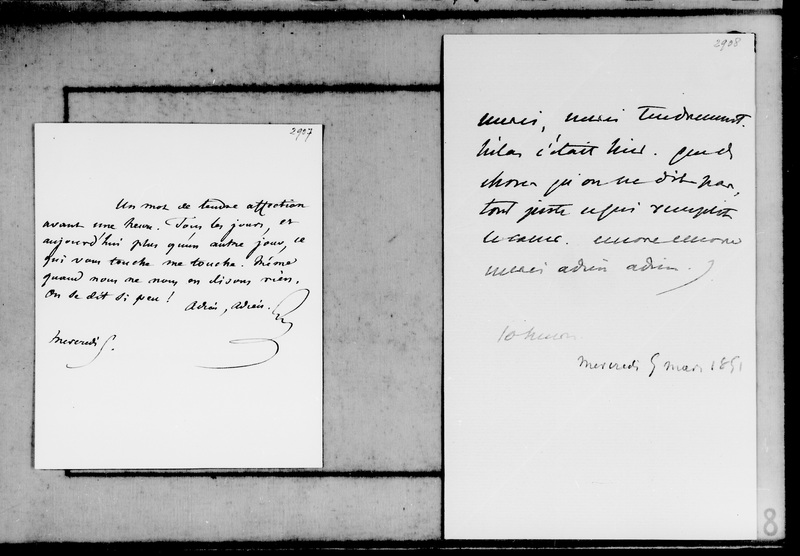 2907
Un mot de tendre affection
avant une heure. Tous les jours, et
aujourd'hui plus qu'un autre jour, ce
qui vous touche me touche. Même
quand nous ne nous en disons rien.
On se dit si peu !
Adieu, adieu.
Mercredi 5.
2908
merci, merci tendrement.
hélas c'était hier. que de
choses qu'on ne dit pas,
tout juste ce qui remplit
le cœur. encore encore
merci adieu adieu.
10 heures
Mercredi 5 mars 1851
8